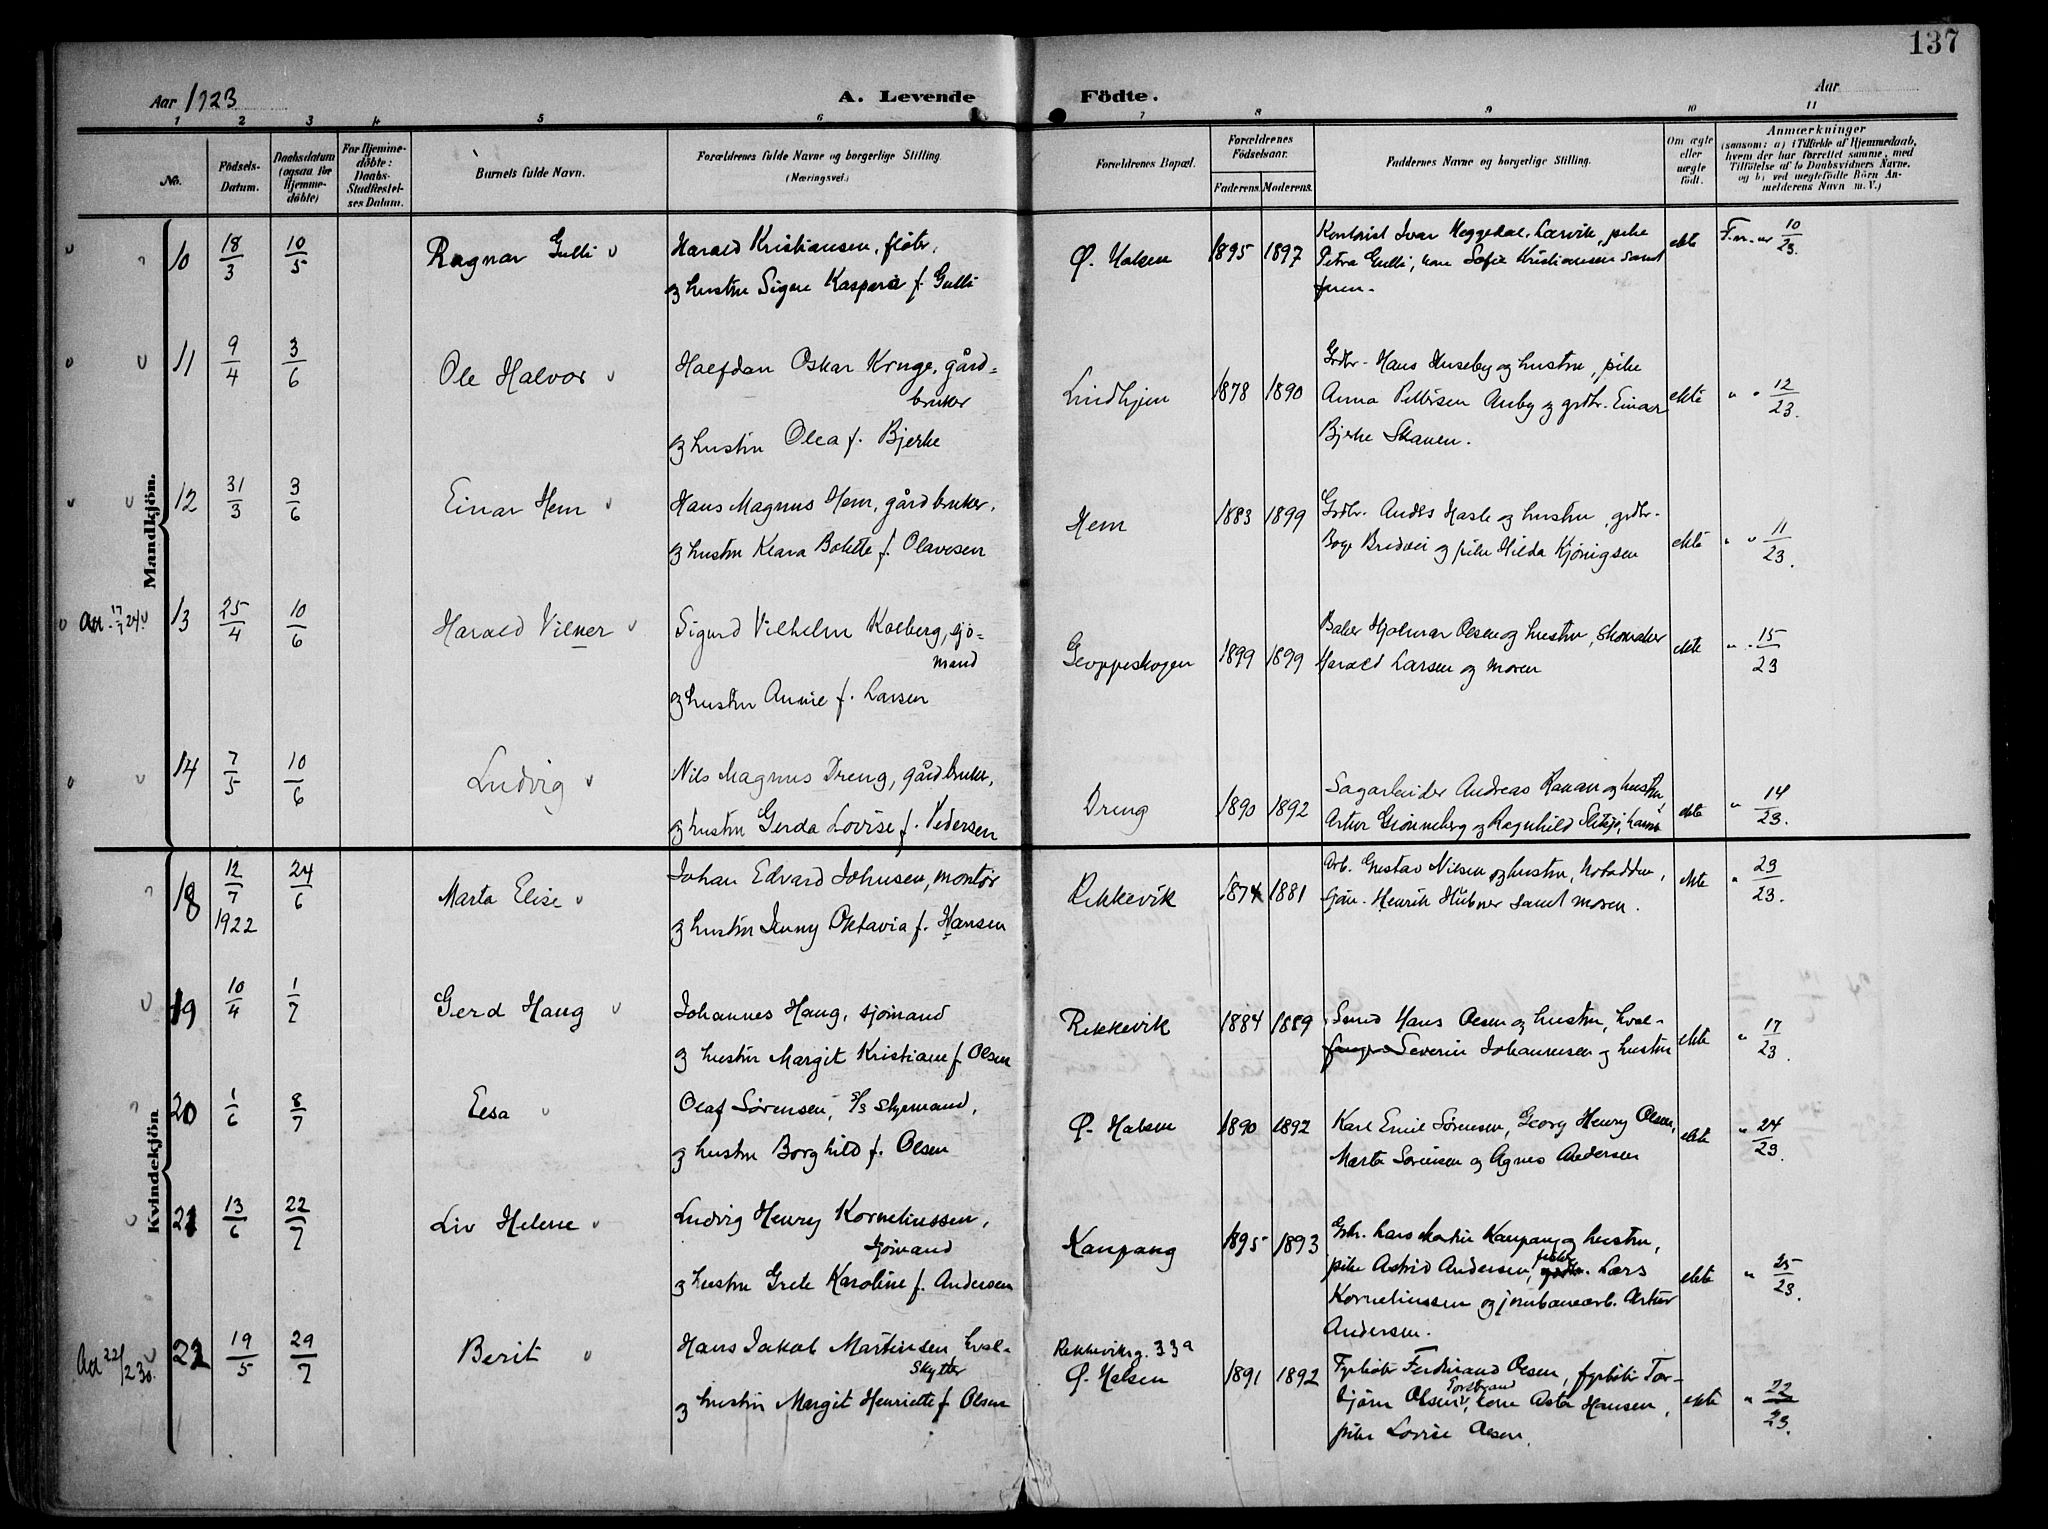 137
Aar 1923
A. Levende Födte.
Aar
1 2 3 4 5 6 7 8 9 10 11
No.
Födsels-Datum.
Daabsdatum (ogsaa for Hjemmedöbte)
For Hjemmedöbte: Daabs-Stadfæstelses Datum.
Barnets fulde Navn.
Forældrenes fulde Navne og borgerlige Stilling. (Næringsvei.)
Forældrenes Bopæl.
Forældrenes Födselsaar.
Faderens. Moderens.
Faddernes Navne og borgerlige Stilling.
Om ægte eller uægte födt.
Anmærkninger
(saasom: a) i Tilfælde af Hjemmedaab, hvem der har forrettet samme, med Tilföielse af to Daabsvidners Navne. og b) ved uægtefödte Börn Anmelderens Navn m. V.)
Mandkjön.
10 18/3 10/5 Ragnar Gulli
Harald Kristiansen, fløtr,
og hustru Signe Kaspara f. Gulli
Ø. Halsen 1895 1897
Kontorist Ivar Heggedal, Larvik, pike
Petra Gulli, kone Sofie Kristiansen samt
faren.
ekte F.m. nr 10/23.
11 9/4 3/6 Ole Halvor
Halfdan Oskar Kruge, gård=
bruker
og hustru Olea f. Bjerke
Lindhjem 1878 1890
Grdbr. Hans Huseby og hustru, pike
Anna Pettersen Auby og grdbr. Einar
Bjerke Skauen.
ekte " " 12/23.
12 31/3 3/6 Einar Hem
Hans Magnus Hem, gårdbruker,
og hustru Klara Bolette f. Olavesen
Hem 1883 1899
Grdbr. Anders Hasle og hustru, grdbr.
Borge Bredvei og pike Hilda Kjønigsen
ekte " " 11/23.
13 25/4 10/6 Harald Vilner
Sigurd Vilhelm Kolberg, sjö=
mand
og hustru Annie f. Larsen
Gloppeskogen 1899 1899
Baker Hjalmar Olsen og hustru, skomaker
Harald Larsen og moren
ekte " " 15/23
14 7/5 10/6 Ludvig
Nils Magnus Dreng, gårdbruker,
og hustru Gerda Lovise f. Pedersen
Dreng 1890 1892
Sagarbeider Andreas Ranan og hustru,
Artur Grönneberg og Ragnhild
ekte " 14/23.
Kvindekjön
18 12/7 1922 24/6 Marta Elise
Johan Edvard Johnsen, montör
og hustru Jenny Oktavia f. Hansen
Rekkevik 1874 1881
Arb. Gustav Nilsen og hustru, Notodden,
Henrik Hübner samt moren.
ekte " 23/23.
19 10/4 1/7 Gerd Haug
Johannes Haug, sjömand
og hustru Margit Kristiane f. Olsen
Rekkevik 1884 1889
Smed Hans Olsen og hustru, hval-
fanger Severin Johannesen og hustru
ekte " 17/23.
20 1/6 8/7 Elsa
Olaf Sørensen, s/s styrmand,
og hustru Borghild f. Olsen
Ø. Halsen 1890 1892
Karl Emil Sørensen, Georg Henry Olsen,
Marta Sørensen og Agnes Andersen
ekte " 24/23.
21 13/6 22/7 Liv Helene
Ludvig Henry Korneliussen,
sjömand
og hustru Grete Karoline f. Andersen
Kaupang 1895 1893
Grbr. Lars Martin Kaupang og hustru,
pike Astrid Andersen, fisker Lars
Korneliussen og jernbanearb. Artur
Andersen.
ekte " 25/23.
22 19/5 29/7 Berit
Hans Jakob Martinsen hval-
skytter
og hustru Margit Henriette f. Olsen
Rekkeviksg. 33a
Ø. Halsen 1891 1892
Fyrböter Ferdinand Olsen, fyrböter Tor-
björn Olsen, Torstrand, kone Asta Hansen,
pike Lovise Olsen.
ekte " 22/23.